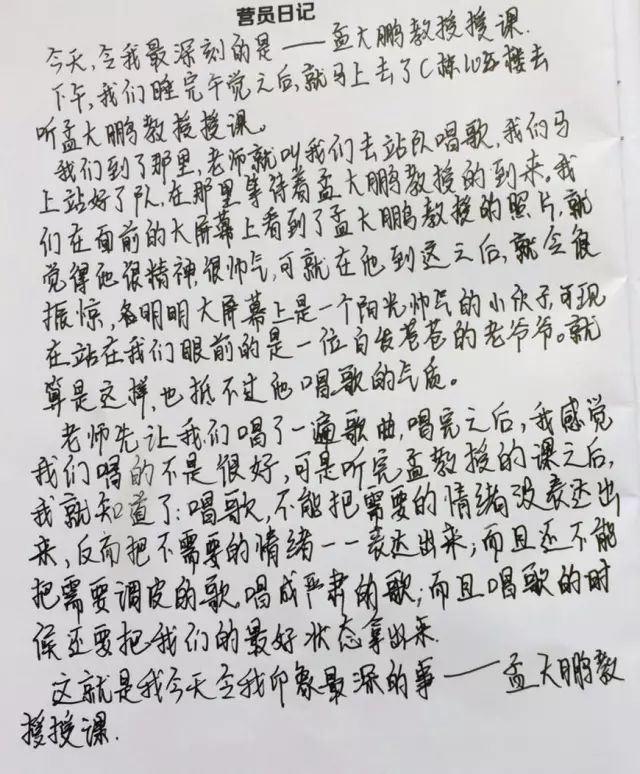 营员日记
今天,令我最深刻的是——孟大鹏教授授课.
下午,我们睡完午觉之后,就马上去了C栋10楼去
听孟大鹏教授授课。
我们到了那里,老师就叫我们去站队唱歌,我们马
上站好了队,在那里等待着孟大鹏教授的到来。我
们在面前的大屏幕上看到了孟大鹏教授的照片,就
觉得他很精神,很帅气,可就在他到这之后,就令我
振惊,明明大屏幕上是一个阳光帅气的小伙子,可现
在站在我们眼前的是一位白发苍苍的老爷爷。就
算是这样,也抵不过他唱歌的气质。
老师先让我们唱了一遍歌曲,唱完之后,我感觉
我们唱的不是很好,可是听完孟教授的课之后,
我就知道了:唱歌,不能把需要的情绪没表达出
来,反而把不需要的情绪一一表达出来;而且还不能
把需要调皮的歌唱成严肃的歌;而且唱歌的时
候还要把我们的最好状态拿出来.
这就是我今天令我印象最深的事——孟大鹏教
授授课.